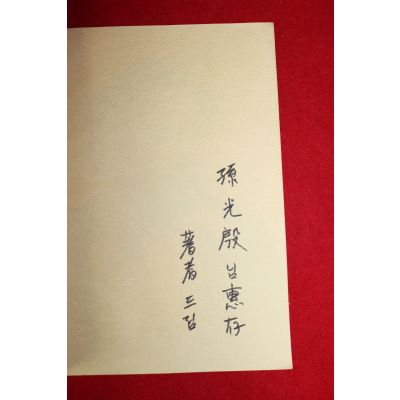 孫光殷님惠存
著者드림